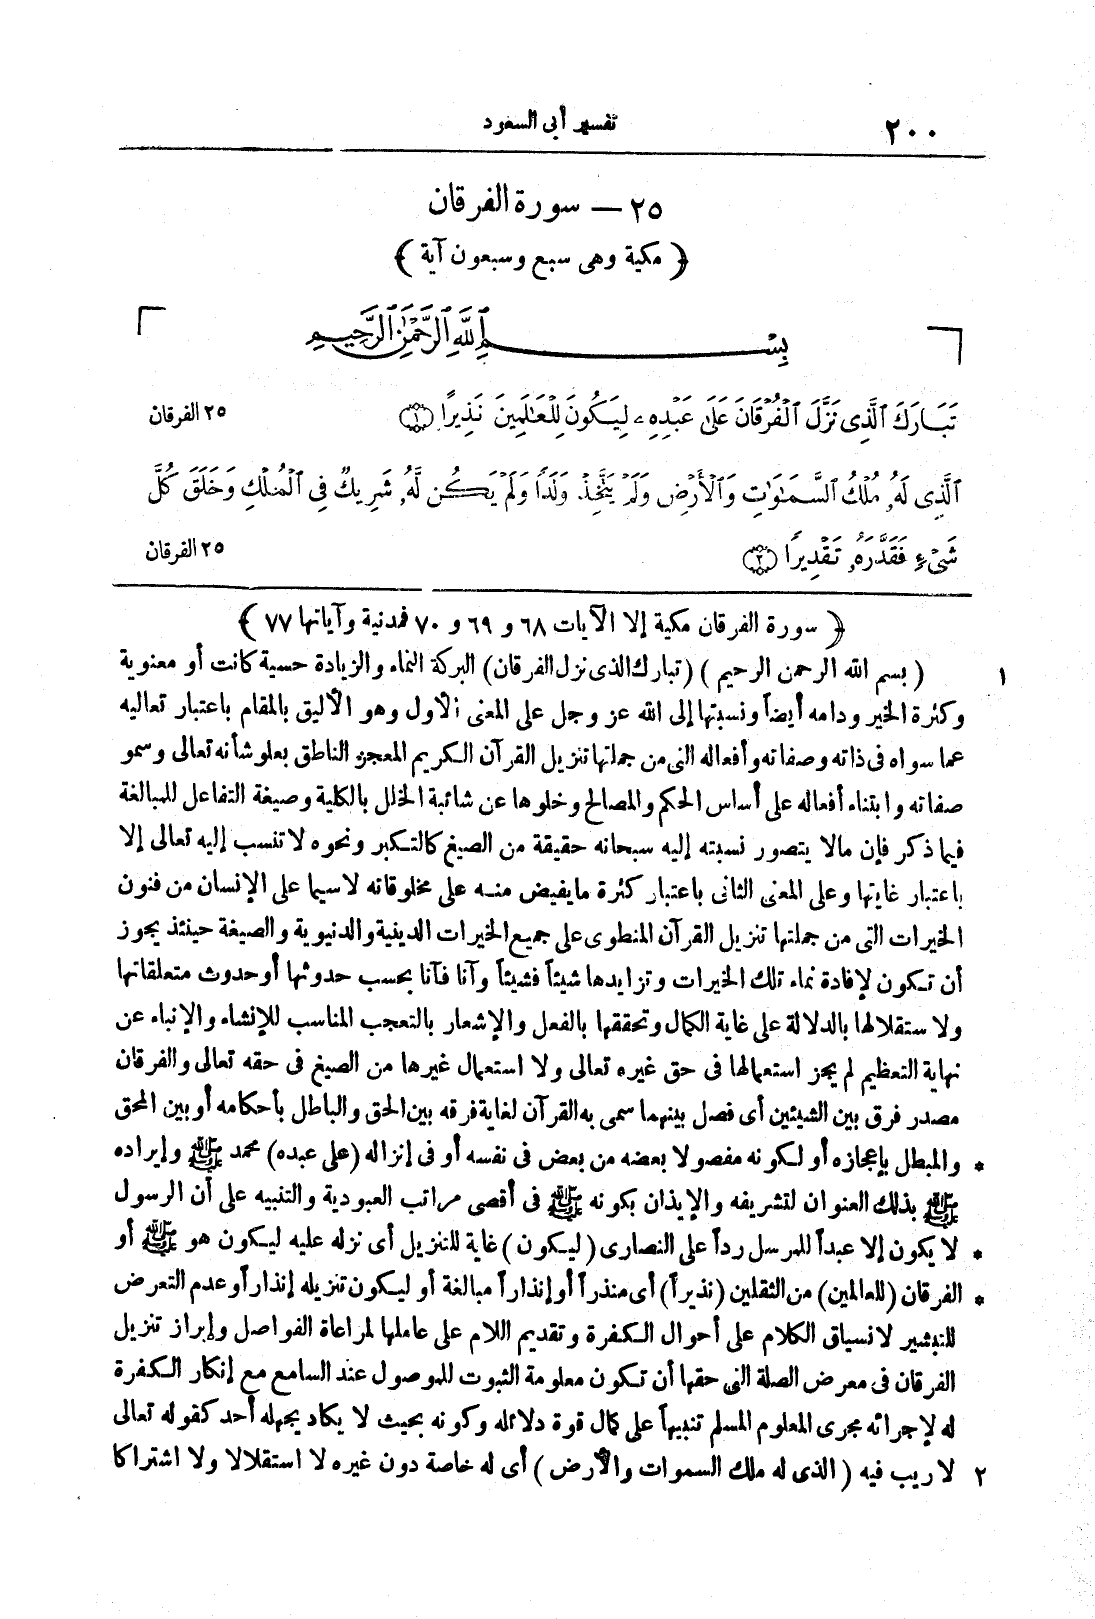 ٢٠٠ تفسير أبى السعود
٢٥ — سورة الفرقان
﴿ مكية وهى سبع وسبعون آية ﴾
بِسْمِ ٱللَّهِ ٱلرَّحْمَٰنِ ٱلرَّحِيمِ
تَبَارَكَ ٱلَّذِى نَزَّلَ ٱلْفُرْقَانَ عَلَىٰ عَبْدِهِۦ لِيَكُونَ لِلْعَٰلَمِينَ نَذِيرًا ﴿١﴾ ٢٥ الفرقان
ٱلَّذِى لَهُۥ مُلْكُ ٱلسَّمَٰوَٰتِ وَٱلْأَرْضِ وَلَمْ يَتَّخِذْ وَلَدًا وَلَمْ يَكُن لَّهُۥ شَرِيكٌ فِى ٱلْمُلْكِ وَخَلَقَ كُلَّ
شَىْءٍ فَقَدَّرَهُۥ تَقْدِيرًا ﴿٢﴾ ٢٥ الفرقان
﴿ سورة الفرقان مكية إلا الآيات ٦٨ و ٦٩ و ٧٠ فمدنية وآياتها ٧٧ ﴾
١ ( بسم الله الرحمن الرحيم ) (تبارك الذى نزل الفرقان) البركة النماء والزيادة حسية كانت أو معنوية
وكثرة الخير ودامه أيضاً ونسبتها إلى الله عز وجل على المعنى الأول وهو الأليق بالمقام باعتبار تعاليه
عما سواه فى ذاته وصفاته وأفعاله التى من جملتها تنزيل القرآن الكريم المعجز الناطق بعلو شأنه تعالى وسمو
صفاته وابتناء أفعاله على أساس الحكم والمصالح وخلوها عن شائبة الخلل بالكلية وصيغة التفاعل للمبالغة
فيما ذكر فإن مالا يتصور نسبته إليه سبحانه حقيقة من الصيغ كالتكبر ونحوه لا تنسب إليه تعالى إلا
باعتبار غايتها وعلى المعنى الثانى باعتبار كثرة ما يفيض منه على مخلوقاته لاسيما على الإنسان من فنون
الخيرات التى من جملتها تنزيل القرآن المنطوى على جميع الخيرات الدينية والدنيوية والصيغة حينئذ يجوز
أن تكون لإفادة نماء تلك الخيرات وتزايدها شيئاً فشيئاً وآنا فآنا بحسب حدوثها أو حدوث متعلقاتها
ولاستقلالها بالدلالة على غاية الكمال وتحققها بالفعل والإشعار بالتعجب المناسب للإنشاء والإنباء عن
نهاية التعظيم لم يجز استعمالها فى حق غيره تعالى ولا استعمال غيرها من الصيغ فى حقه تعالى والفرقان
مصدر فرق بين الشيئين أى فصل بينهما سمى به القرآن لغاية فرقه بين الحق والباطل بأحكامه أو بين المحق
* والمبطل بإعجازه أو لكونه مفصولا بعضه من بعض فى نفسه أو فى إنزاله (على عبده) محمد ﷺ وإيراده
ﷺ بذلك العنوان لتشريفه والإيذان بكونه ﷺ فى أقصى مراتب العبودية والتنبيه على أن الرسول
* لا يكون إلا عبداً للمرسل رداً على النصارى (ليكون) غاية للتنزيل أى نزله عليه ليكون هو ﷺ أو
* الفرقان (للعالمين) من الثقلين (نذيراً) أى منذراً أو إنذاراً مبالغة أو ليكون تنزيله إنذاراً وعدم التعرض
للتبشير لانسياق الكلام على أحوال الكفرة وتقديم اللام على عاملها لمراعاة الفواصل وإبراز تنزيل
الفرقان فى معرض الصلة التى حقها أن تكون معلومة الثبوت للموصول عند السامع مع إنكار الكفرة
له لإجرائه مجرى المعلوم المسلم تنبيهاً على كمال قوة دلائله وكونه بحيث لا يكاد يجهله أحد كقوله تعالى
٢ لاريب فيه ( الذى له ملك السموات والأرض ) أى له خاصة دون غيره لا استقلالا ولا اشتراكا